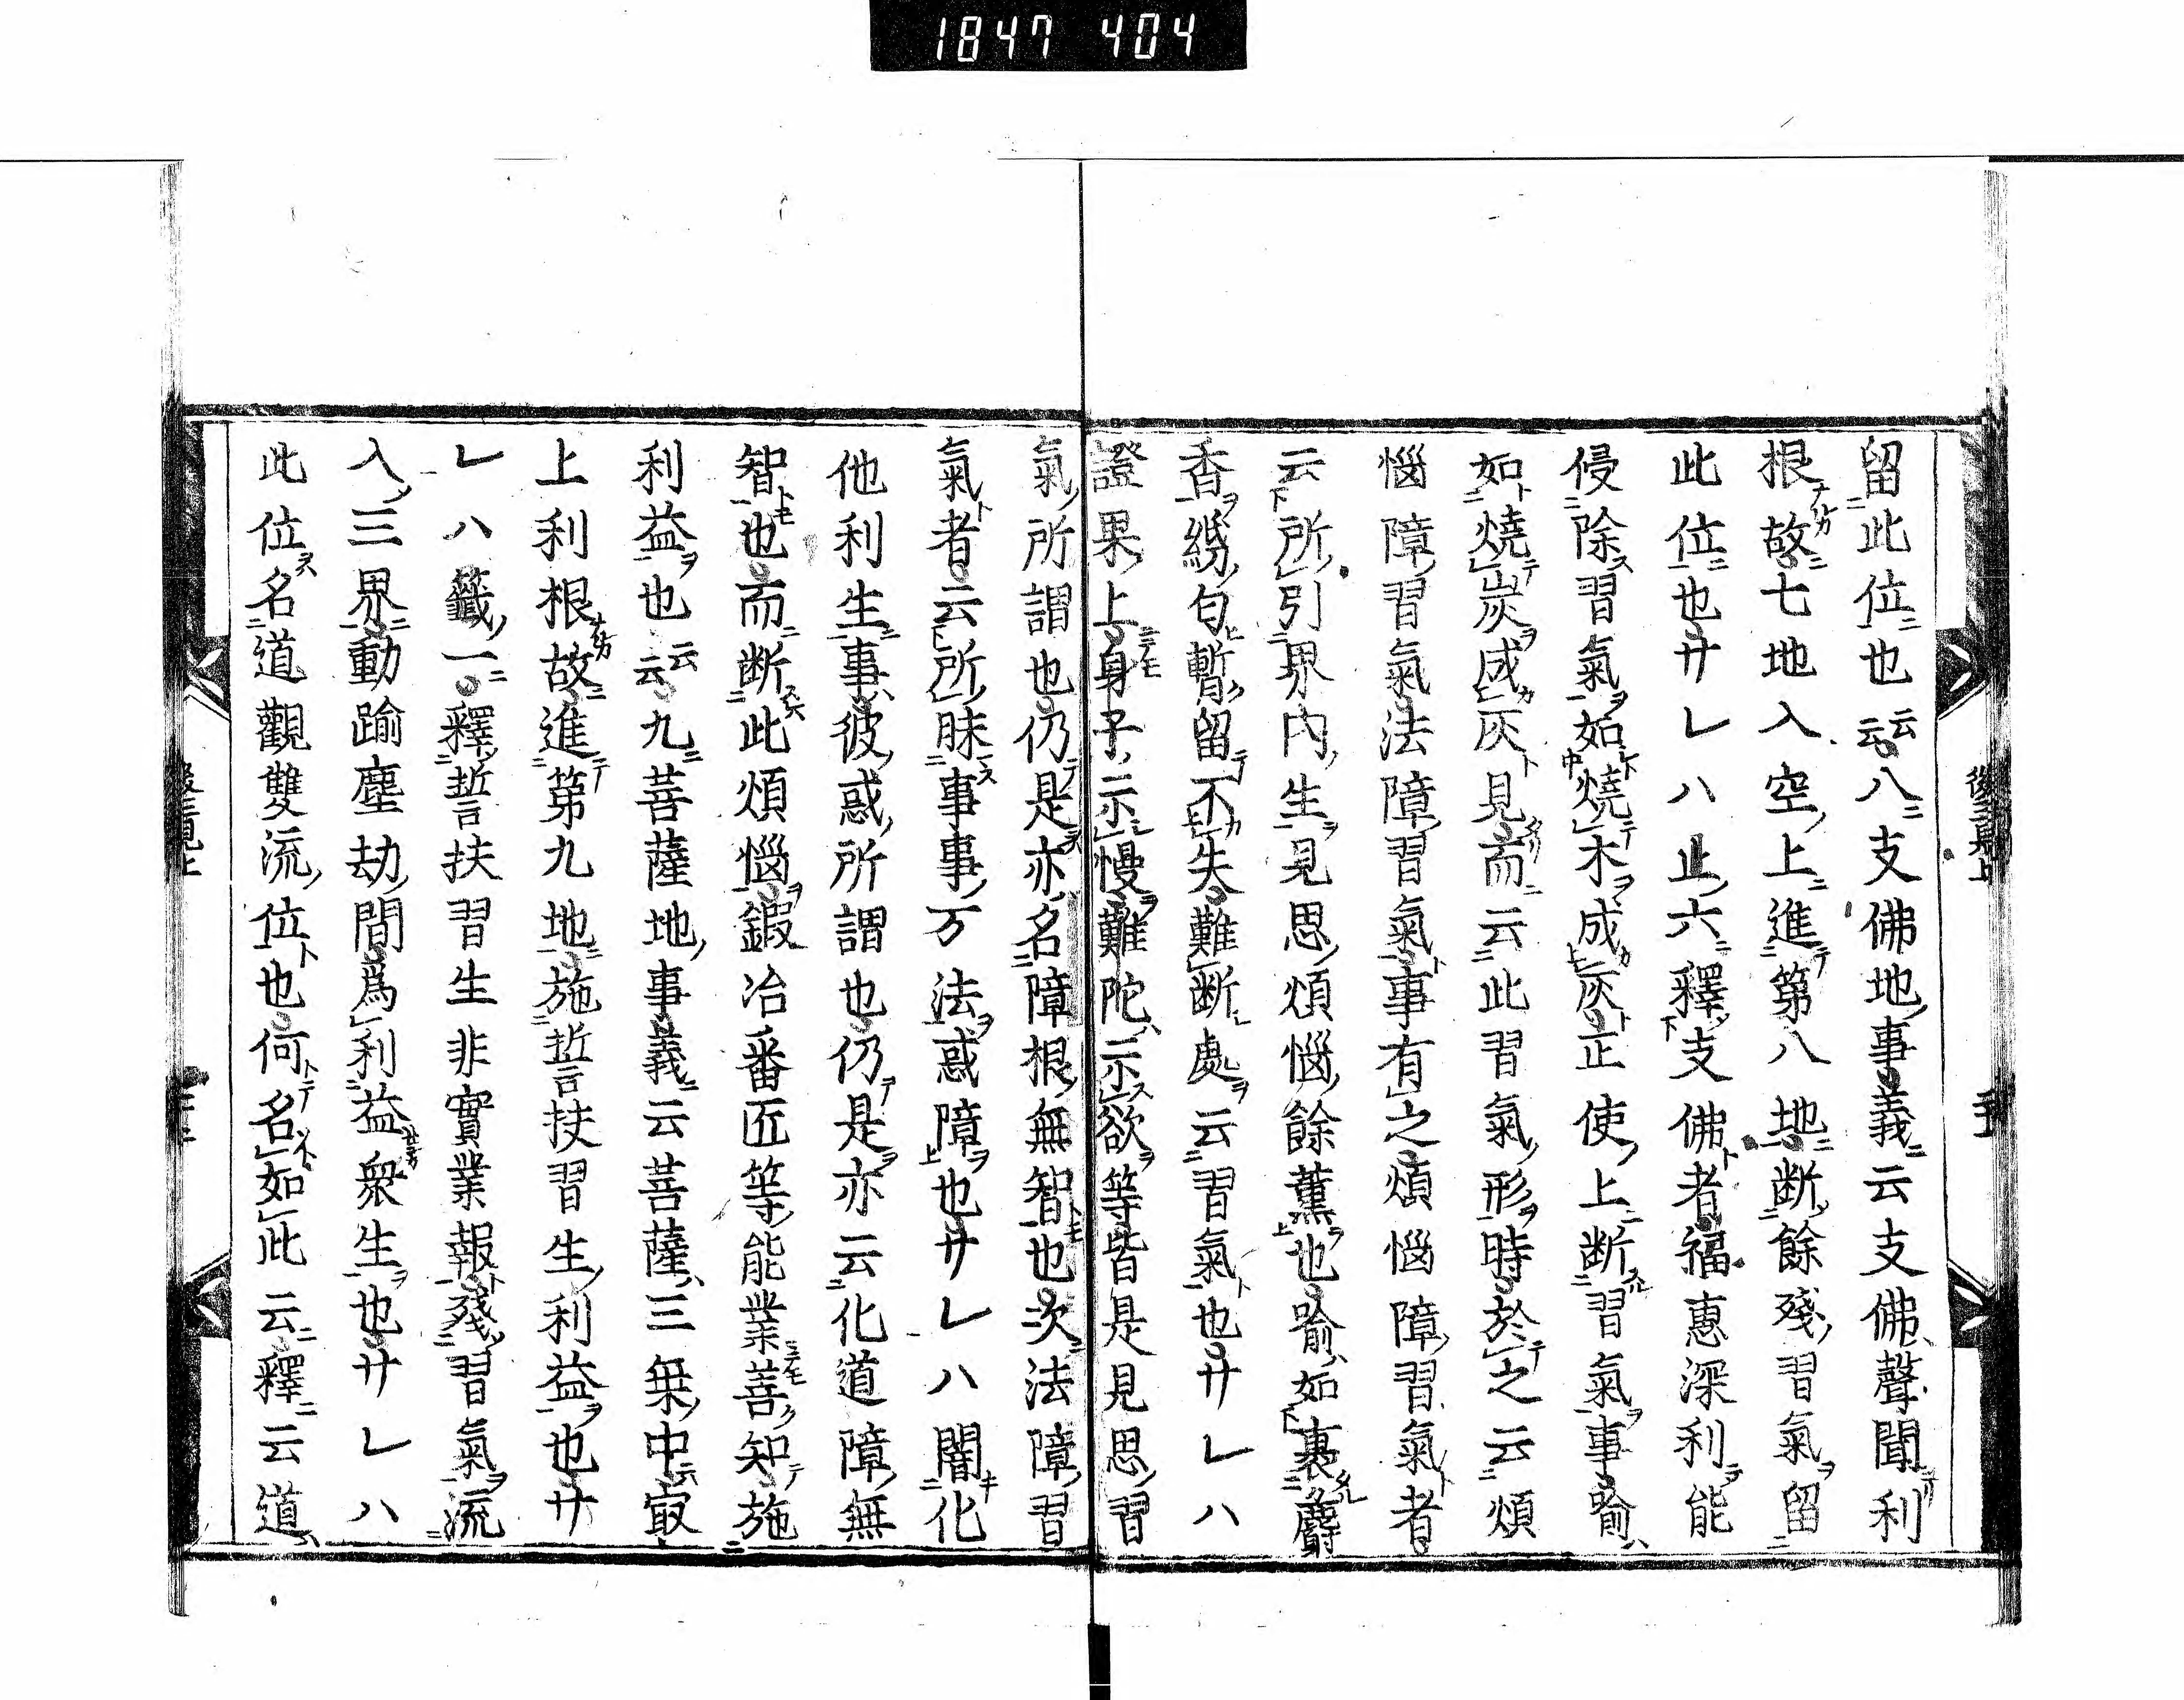 1847 404
留此位也云云八支佛地事義云支佛聲聞利
根故七地入空上進第八地断餘殘習氣留
此位也廾レ八止六釋支佛者福惠深利能
侵除習氣如燒木成灰正使上断習氣事喻
如燒炭成灰見而云此習氣形時於之云煩
惱障習氣法障習氣事有之煩惱障習氣者
云所引界内生見思煩惱餘薫也喻如裹麝
香繦匂暫留不失難断處云習氣也廾レ八
證果上身子示慢難陀示欲等皆是見思習
氣所謂也仍是亦名障根無智也次法障習
氣者云所昧事事万法惑障也廾レ八闇化
他利生事彼惑所謂也仍是亦云化道障無
智也而断此煩惱鍜冶番匠等能業善知施
利益也云云九菩薩地事義云菩薩三乗中㝡
上利根故進第九地施誓扶習生利益也廾
レ八籤一釋誓扶習生非實業報殘習氣流
入三界動踰塵劫間爲利益衆生也廾レ八
此位名道觀雙流位也何名如此云釋云道